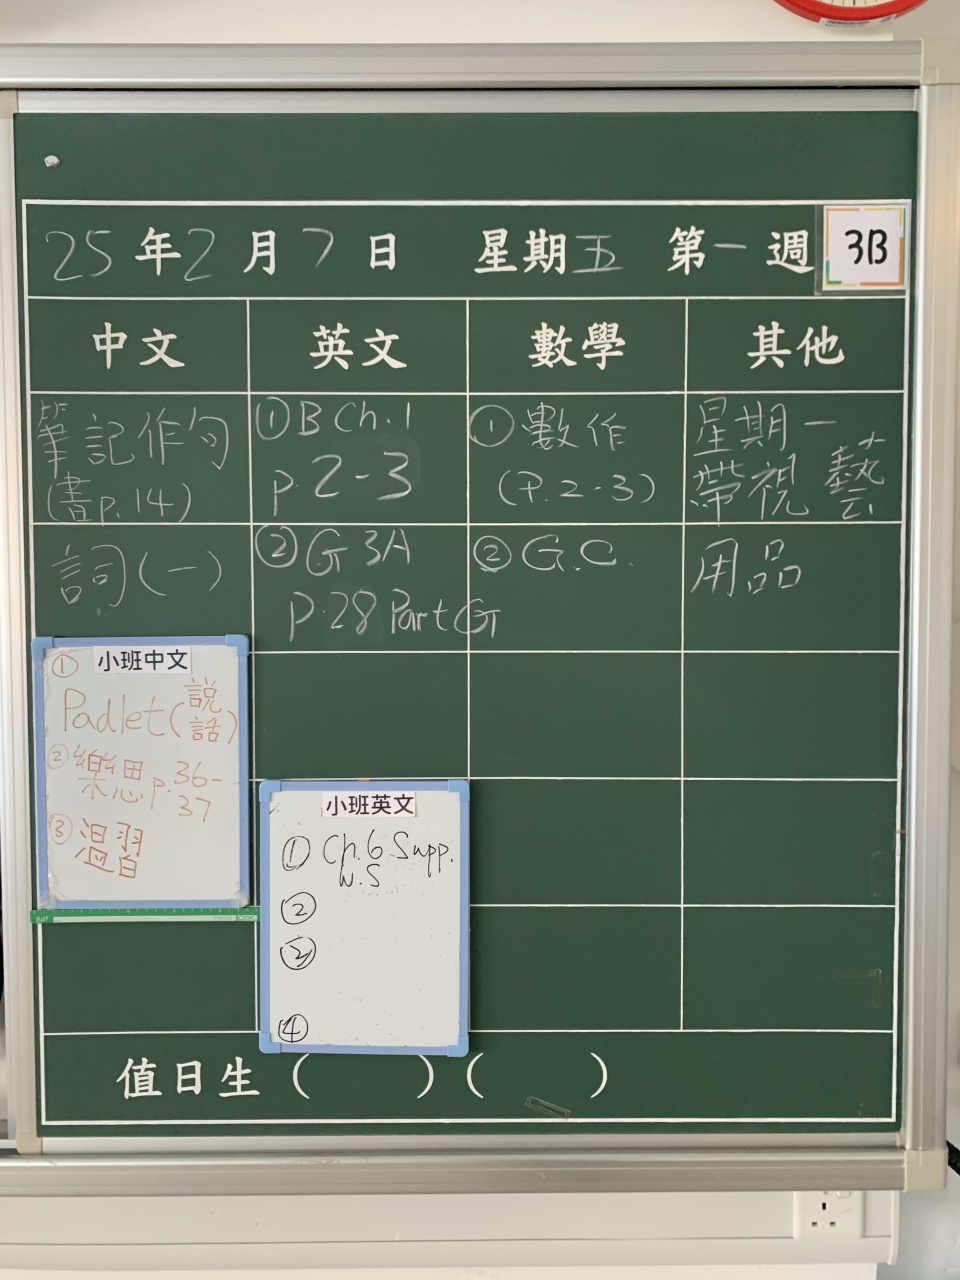 25年2月7日 星期五 第一週 3B
中文 英文 數學 其他
筆記作句
(書p.14)
詞(一)
①BCh.1
p.2-3
②G 3A
P.28 Part G
①數作
(P.2-3)
②G.C.
星期一
帶視藝
用品
小班中文
①
Padlet(説話)
②樂思p.36-
37
③溫習
小班英文
①Ch.6 Supp.
W.S
②
③
④
值日生( )( )